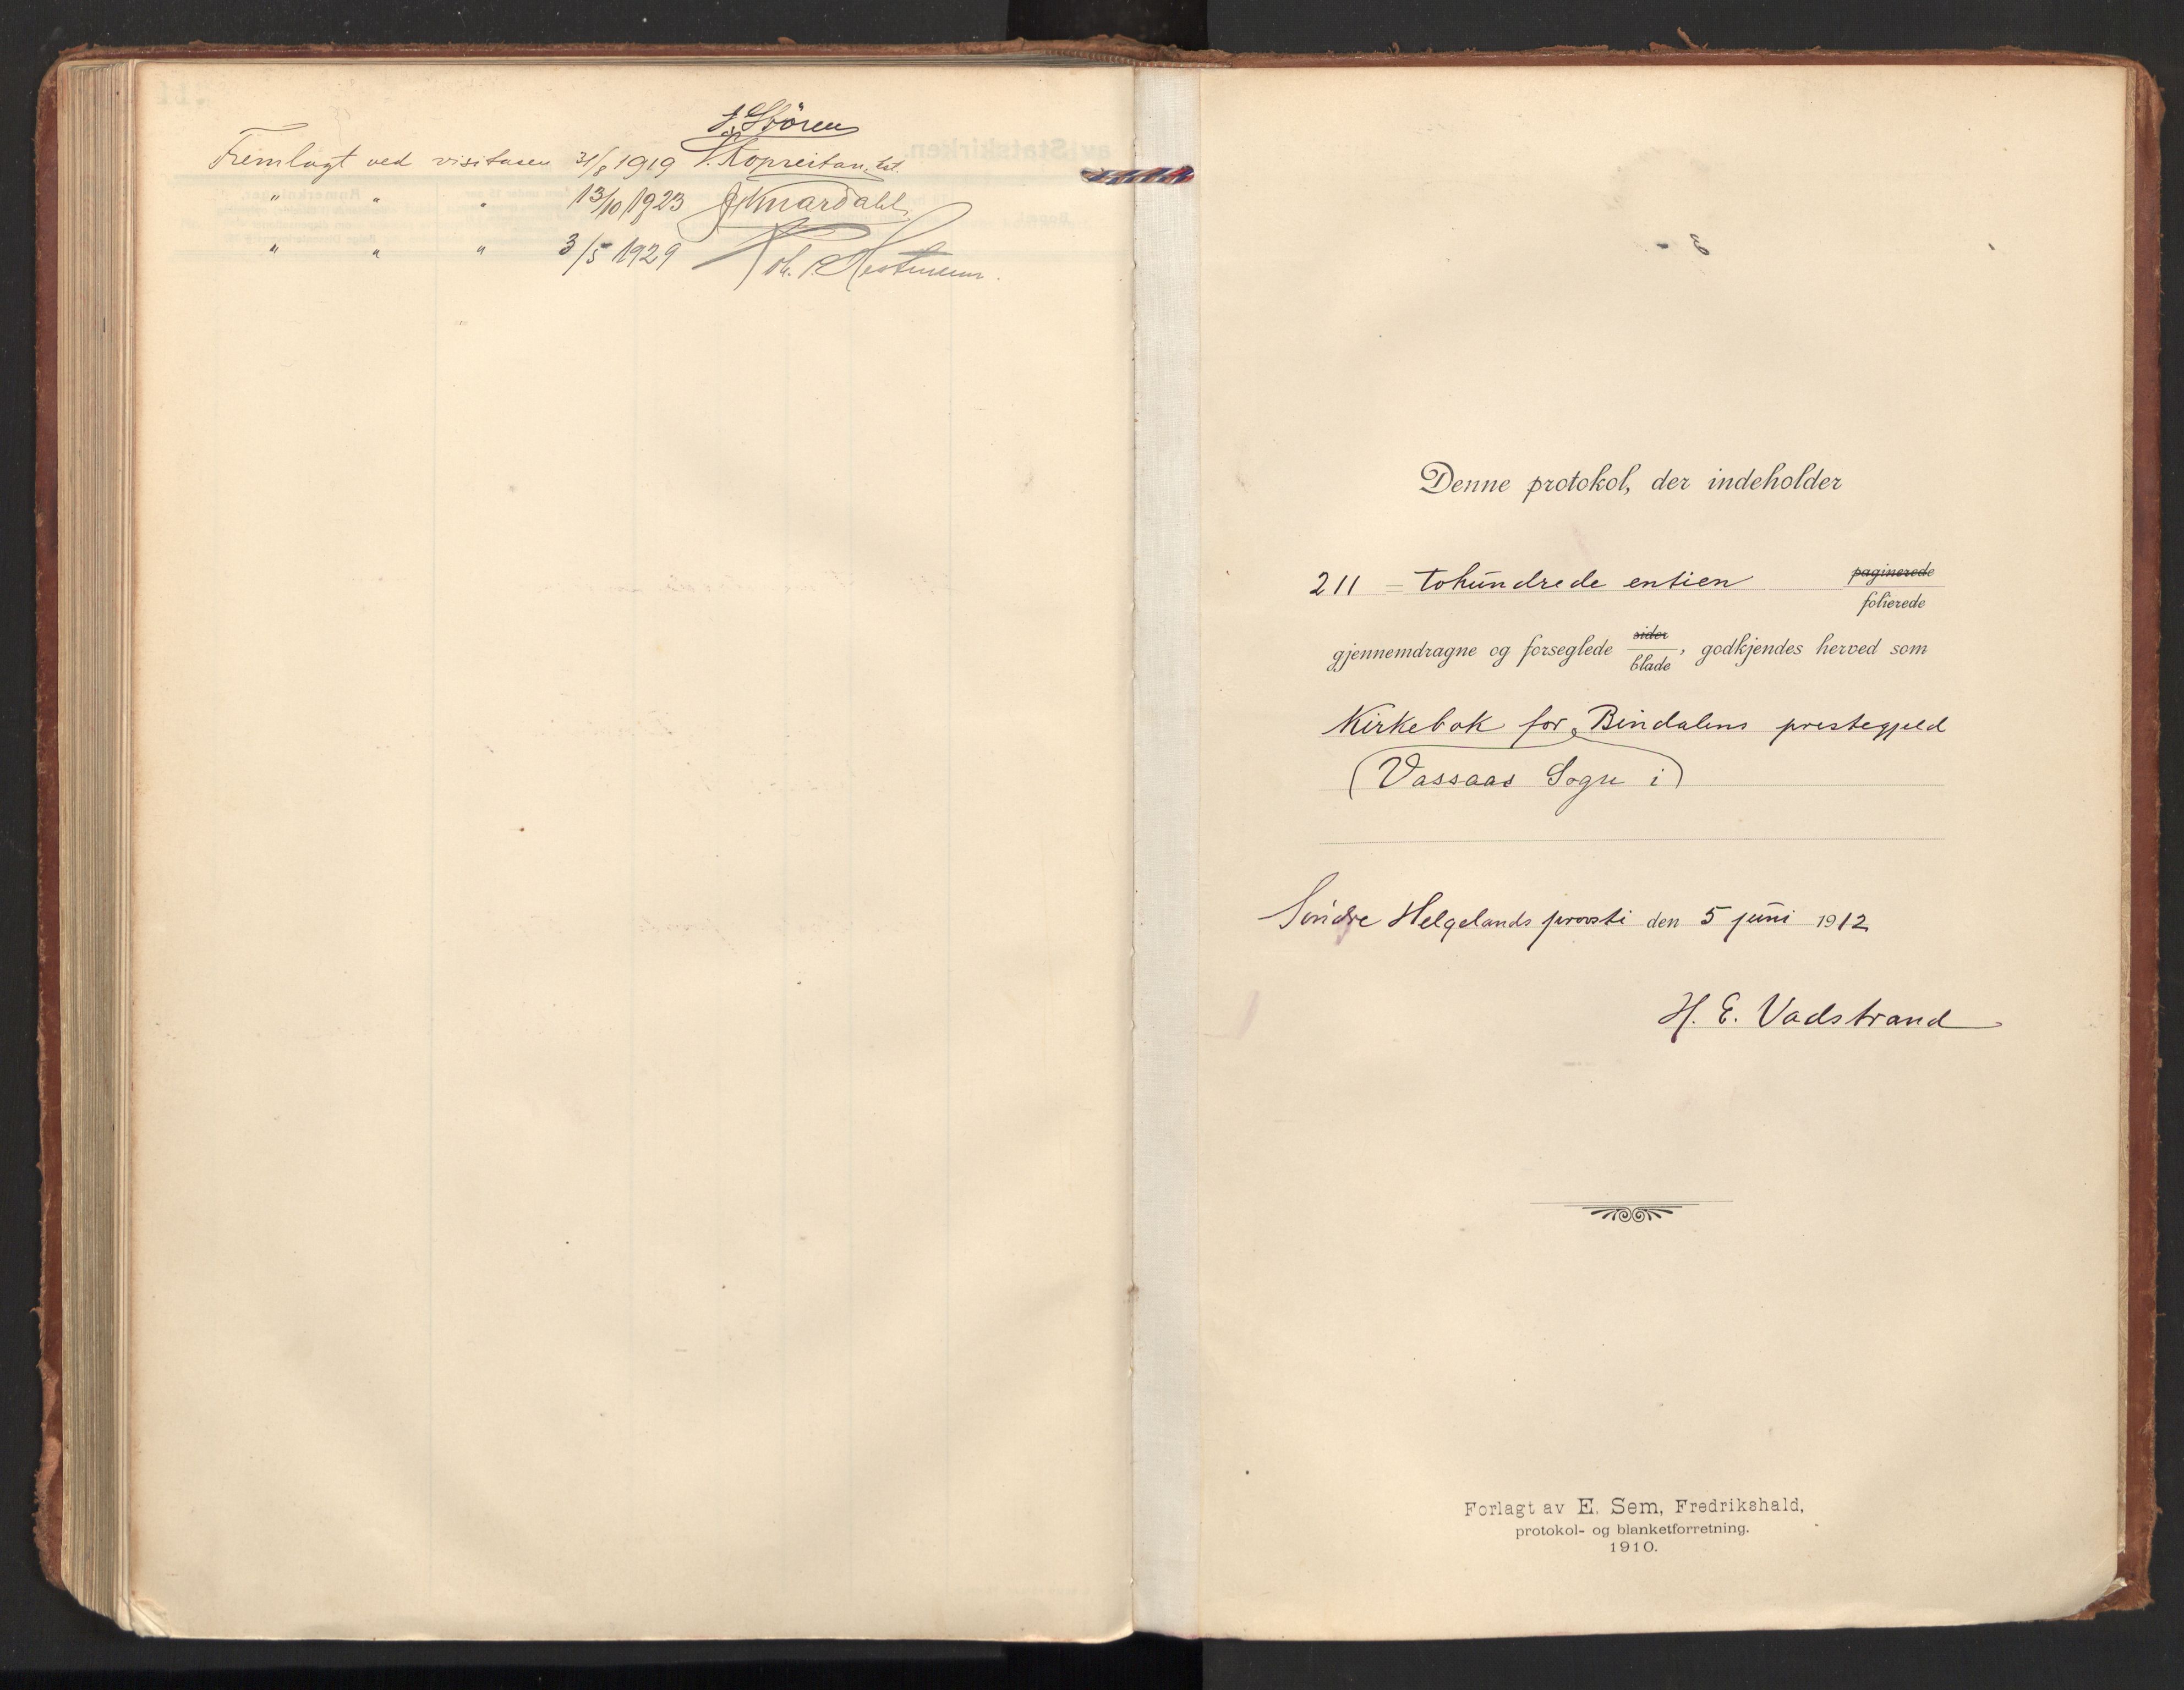 J. Støren
Fremlagt ved visitasen 31/8 1919
" " " 13/10 1923
" " " 3/5 1929
Denne protokol, der indeholder
211 = tohundrede entien paginerede
folierede
gjennemdragne og forseglede sider
blade, godkjendes herved som
Kirkebok for Bindalens prestegjeld
(Vassaas Sogn i)
Søndre Helgelands provsti den 5 juni 1912
H. E. Vadstrand
Forlagt av E. Sem, Fredrikshald,
protokol- og blanketforretning.
1910.